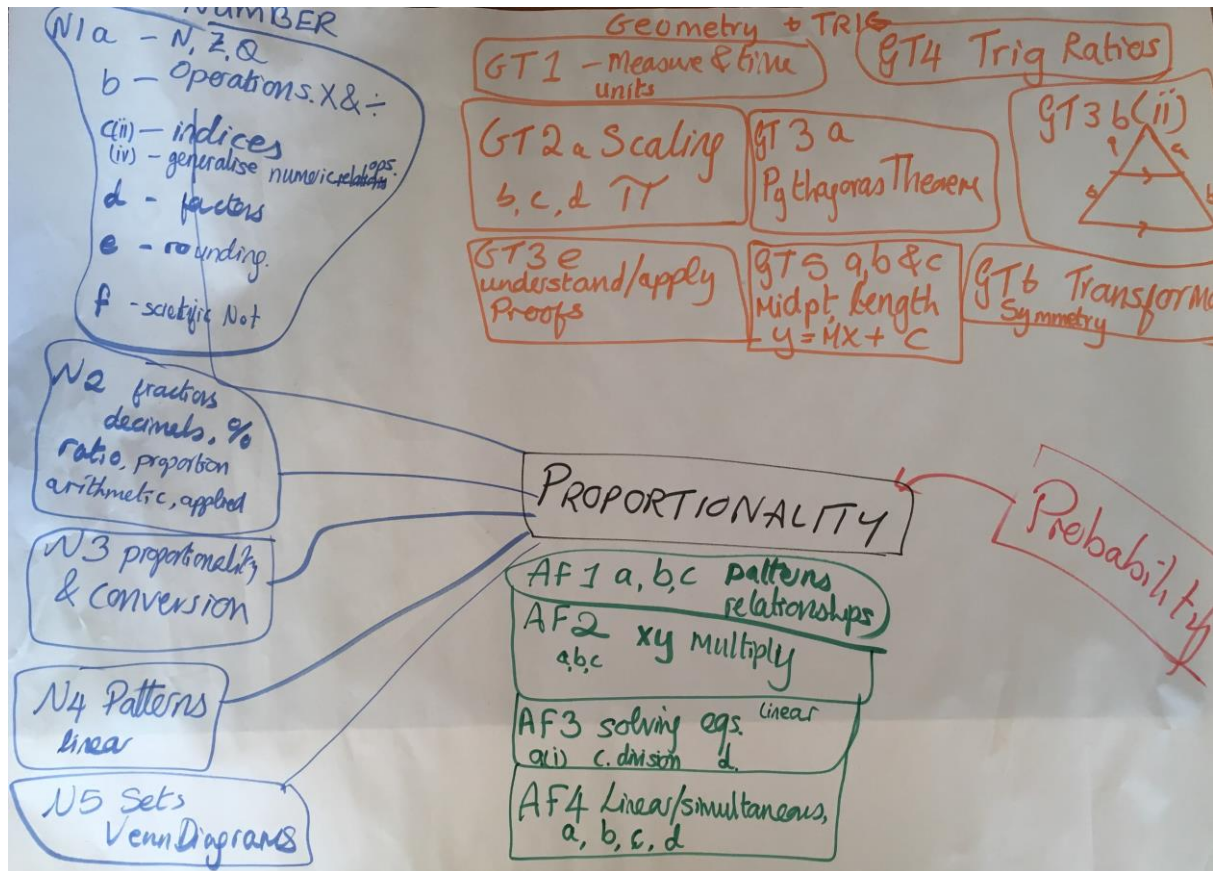 NUMBER
N1a - N, Z, Q
b - Operations. X & ÷
c(ii) - indices
(iv) - generalise numeric ops.
d - factors
e - rounding.
f - scientific Not
N2 fractions
decimals, %
ratio, proportion
arithmetic, applied
N3 proportionality
& conversion
N4 Patterns
linear
N5 Sets
Venn Diagrams
Geometry + TRIG
GT1 - Measure & time
units
GT4 Trig Ratios
GT2a Scaling
b, c, d π
GT3 a
Pythagoras Theorem
GT3 b(ii)
GT3 e
understand/apply
Proofs
GT5 a, b & c
Midpt, Length
- y = mx + c
GT6 Transforma
Symmetry
PROPORTIONALITY
Probability
AF1 a, b, c patterns
relationships
AF2 xy Multiply
a, b, c
AF3 solving eqs. linear
a(i) c. division d.
AF4 Linear/simultaneous,
a, b, c, d